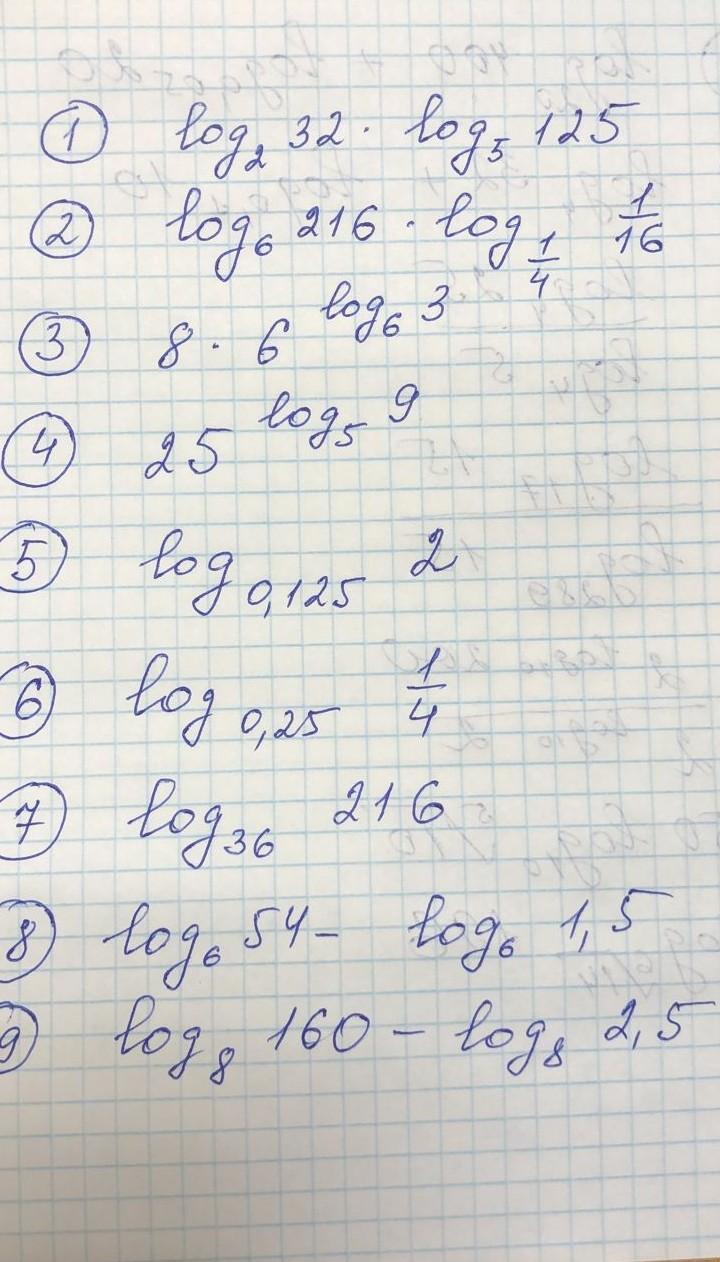 ① log₂ 32 · log₅ 125
② log₆ 216 · log_{1/4} 1/16
③ 8 · 6^{log₆ 3}
④ 25^{log₅ 9}
⑤ log_{0,125} 2
⑥ log_{0,25} 1/4
⑦ log₃₆ 216
⑧ log₆ 54 - log₆ 1,5
⑨ log₈ 160 - log₈ 2,5